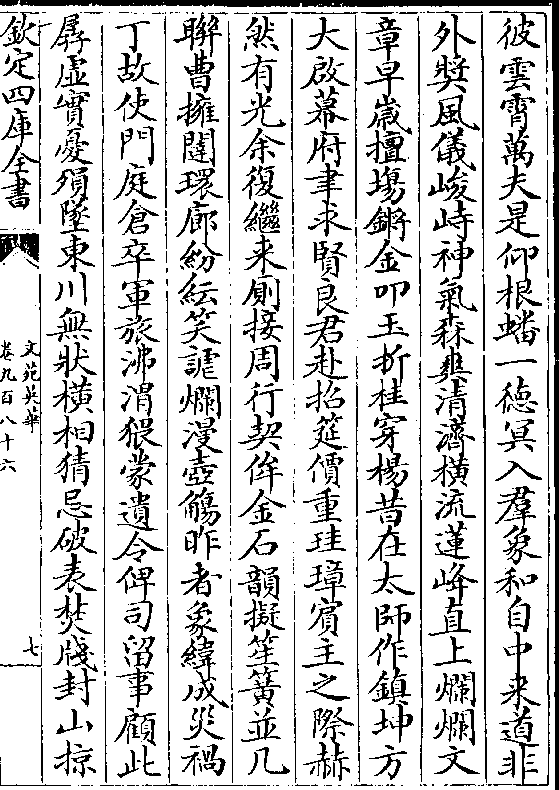 彼雲霄萬夫是仰根蟠一徳冥入羣象和自中来道非
外奬風儀峻峙神氣森爽清濟横流蓮峰直上爛爛文
章早嵗擅塲鏘金叩玉折桂穿楊昔在太師作鎮坤方
大啟幕府聿求賢良君赴招筵價重珪璋賔主之際赫
然有光余復繼来厠接周行契侔金石韻擬笙簧並几
聨曹擁闥環廊紛紜笑謔爛漫壺觴昨者象緯成災禍
丁故使門庭倉卒軍旅沸渭猥蒙遺令俾司留事顧此
孱虚實憂湏墜東川無狀横相猜忌破表焚牋封山掠
欽定四庫全書
文苑英華
卷九百八十六
七